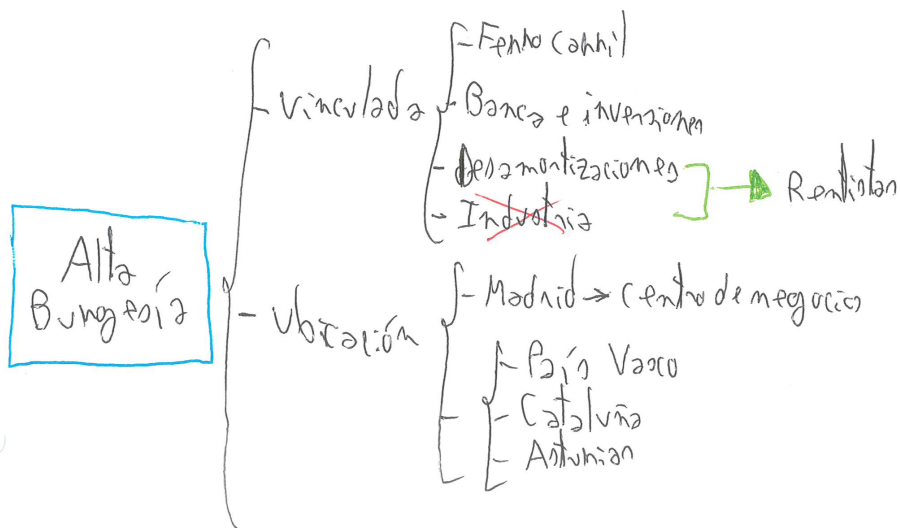 Alta
Burgesía
- vinculada
- Ferrocarril
- Banca e inversiones
- Desamortizaciones
- Industria
→ Rentistas
- Ubicación
- Madrid → Centro de negocios
- País Vasco
- Cataluña
- Asturias